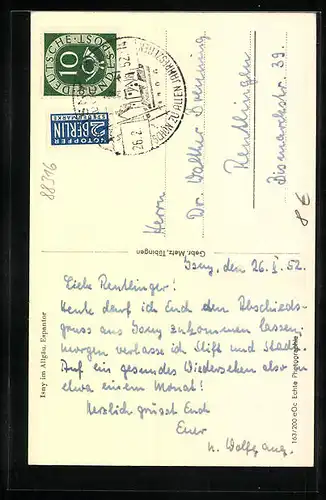 DEUTSCHE BUNDESPOST
10
NOTOPFER
2 BERLIN
STEUERMARKE
26.2.
52
SCHÖN ZU ALLEN
88316
Herrn
Dr. Walther
Reutlingen
Bismarckstr. 39.
8 €
Gebr. Metz, Tübingen
Isny im Allgäu.
163/200 eOc Echte Photographie
Isny, den 26. II. 52.
Liebe Reutlinger!
Heute darf ich Euch den Abschieds-
gruss aus Isny zukommen lassen,
morgen verlasse ich Stift und Stadt.
Auf ein gesundes Wiedersehen also in
etwa einem Monat!
Herzlich grüsst Euch
Euer
Wolfgang.